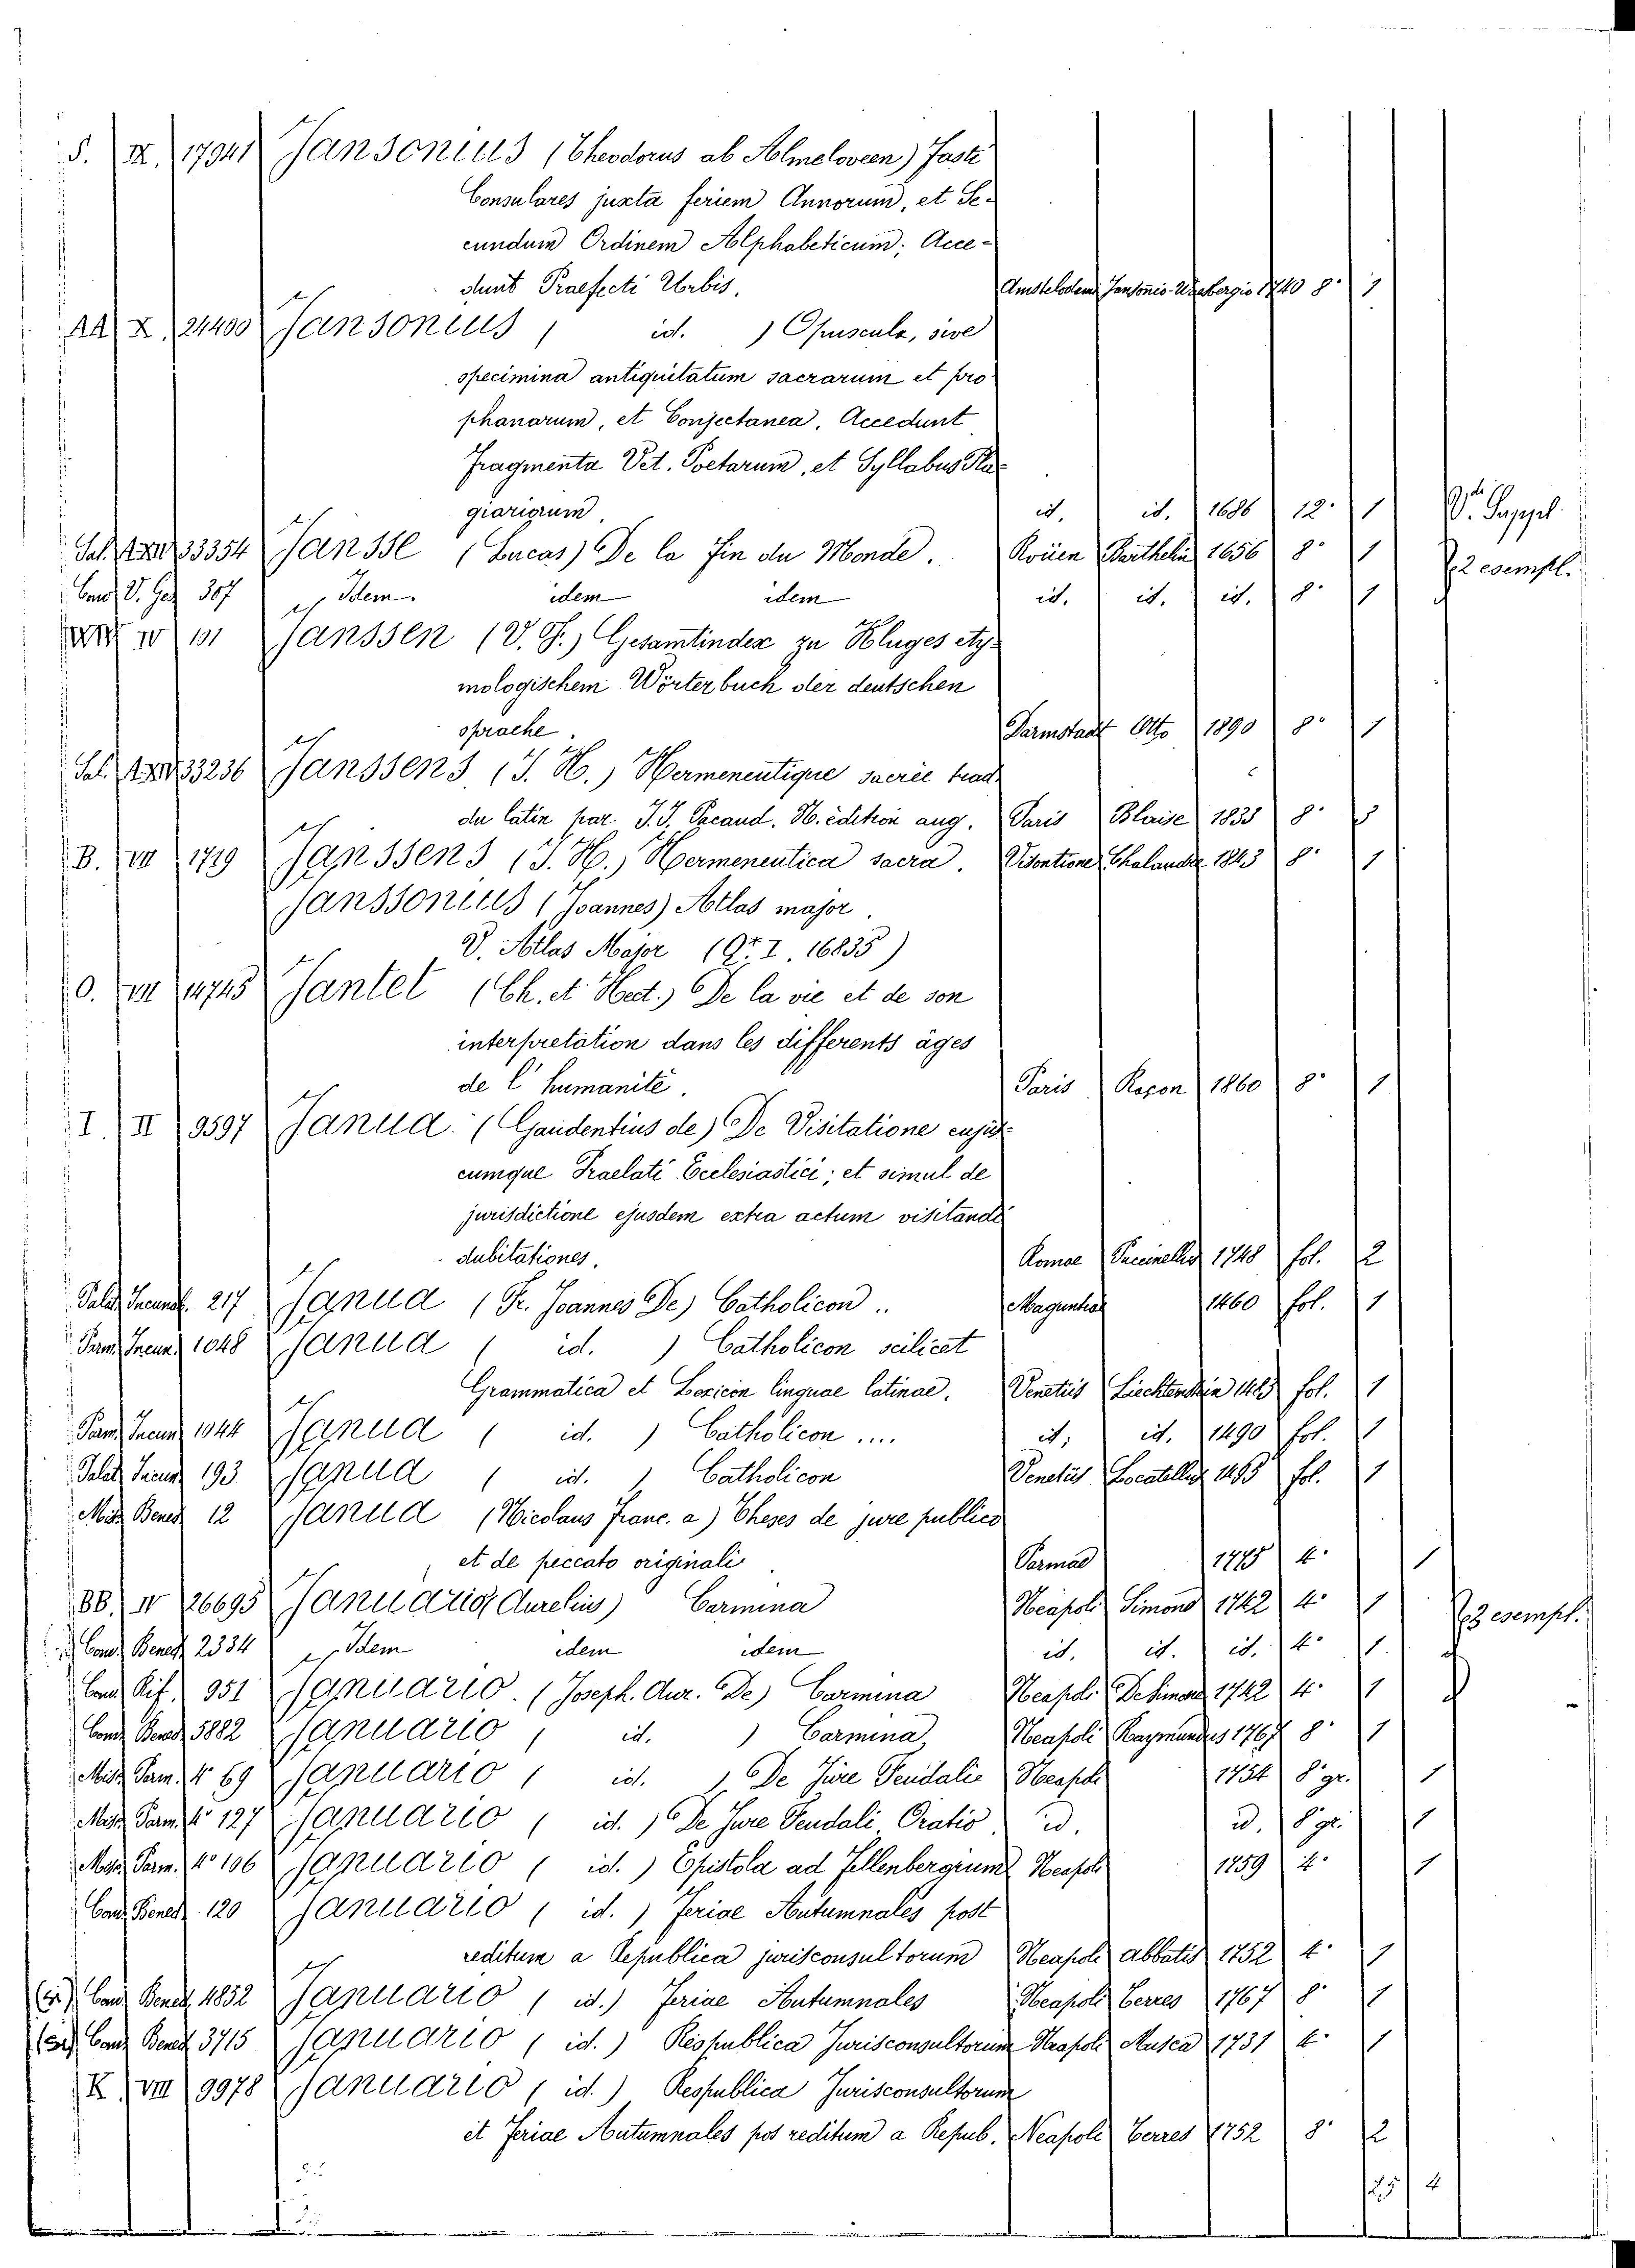 S. IX. 17941 Jansonius (Theodorus ab Almeloveen) Fasti
Consulares juxta feriem Annorum, et Se-
cundum Ordinem Alphabeticum; Acce-
dunt Praefecti Urbis. Amstelodami Jansonio-Waesbergio 1740 8° 1
AA X. 24400 Jansonius ( id. ) Opuscula, sive
specimina antiquitatum sacrarum et pro
phanarum, et Conjectanea. Accedunt
Fragmenta Vet. Poetarum, et Syllabus Pla
giariorum. id. id. 1686 12° 1 V. Suppl.
Sal. 33354 Jansse (Lucas) De la fin du Monde. Roüen Berthelin 1656 8° 1 2 esempl.
Cand. V. Ger 307 Idem. idem idem id. id. id. 8° 1
IV 101 Janssen (V. F.) Gesamtindex zu Kluges ety-
mologischem Wörterbuch der deutschen
sprache. Darmstadt Otto 1890 8° 1
Sal. 33236 Janssens (J. H.) Hermeneutique sacrée trad
du latin par J. J. Pacaud. H. édition aug. Paris Blaise 1833 8° 3
B. VII 1719 Janssens (J. H.) Hermeneutica sacra. Visontione Chalandre 1843 8° 1
Janssonius (Joannes) Atlas major.
V. Atlas Major (Qr. I. 16835)
O. VIII 14745 Jantet (Ch. et Hect.) De la vie et de son
interpretation dans les differents âges
de l'humanité. Paris Raçon 1860 8° 1
I. II 9597 Janua. (Gaudentius de) De Visitatione cujus-
cumque Praelati Ecclesiastici; et simul de
jurisdictione ejusdem extra actum visitandi
dubitationes. Romae Puccinellio 1748 fol. 2
Palat. Incunab. 217 Janua (Fr. Joannes De) Catholicon .. Maguntiae 1460 fol. 1
Parm. Incun. 1048 Janua ( id. ) Catholicon scilicet
Grammatica et Lexicon linguae latinae. Venetiis Liechtenstein 1483 fol. 1
Parm. Incun. 1044 Janua ( id. ) Catholicon .... id. id. 1490 fol. 1
Palat. Incun. 193 Janua ( id. ) Catholicon Venetiis Locatellus 1495 fol. 1
Misc. Bened. 12 Janua (Nicolaus Franc. a) Theses de jure publico
et de peccato originali Parmae 1775 4° 1
BB. IV 26695 Januario Aurelius) Carmina Neapoli Simone 1742 4° 1 3 esempl.
Cand. Bened. 2334 Idem idem idem id. id. id. 4° 1
Cand. Rif. 951 Januario. (Joseph. Aur. De) Carmina Neapoli De Simone 1742 4° 1
Cand. Bened. 5882 Januario ( id. ) Carmina Neapoli Raymundus 1767 8° 1
Misc. Parm. 4° 69 Januario ( id. ) De Jure Feudalie Neapoli 1754 8° gr. 1
Misc. Parm. 4° 127 Januario ( id. ) De Jure Feudali Oratio id. id. 8° gr. 1
Misc. Parm. 4° 106 Januario ( id. ) Epistola ad Fellenbergium Neapoli 1759 4° 1
Cand. Bened. 120 Januario ( id. ) Feriae Autumnales post
reditum a Republica jurisconsultorum Neapoli abbatis 1752 4° 1
Cand. Bened. 4852 Januario ( id.) Feriae Autumnales Neapoli Terres 1767 8° 1
Cand. Bened. 3715 Januario ( id.) Respublica Jurisconsultorum Neapoli Musca 1731 4° 1
K VIII 9978 Januario ( id.) Respublica Jurisconsultorum
et Feriae Autumnales pos reditum a Repub. Neapoli Terres 1752 8° 2
25 4